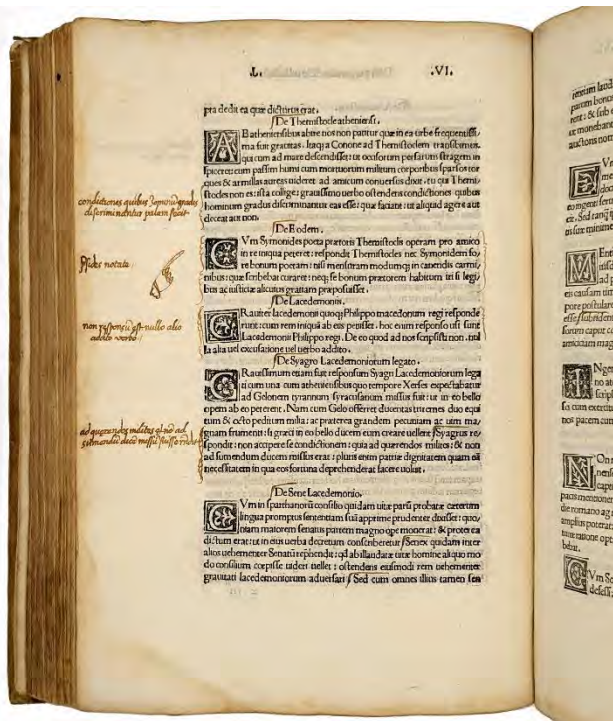 .L. .VI.
pra dedit ea quæ dicturus erat.
De Themistocle atheniensi.
AB atheniensibus abire nos non patitur quæ in ea urbe frequentissi/
ma fuit gravitas. Itaq; a Conone ad Themistoclem transibimus.
qui cum ad mare descendisset: ut occisorum persarum stragem in
spiceret: cum passim humi cum mortuorum militum corporibus sparsos tor
ques & armillas aureas uideret ad amicum conuersus dixit. tu qui Themi/
stocles non es: ista collige: grauissimo uerbo ostendens conditiones quibus
hominum gradus discriminantur eas esse: quæ faciant: ut aliquid agere aut
deceat aut non.
condictiones quibus hominum gradus
discriminentur palam fecit
De Eodem.
CVm Symonides poeta prætoris Themistoclis operam pro amico
in re iniqua peteret: respondit Themistocles nec Symonidem fo/
re bonum poetam: nisi mensuram modumq; in canendis carmi/
nibus: quæ scribebat curaret: neq; se bonum prætorem habitum iri si legi/
bus ac iustitiæ alicuius gratiam præposuisset.
notata
De Lacedemoniis.
GRauiter lacedemonii quoq; Philippo macedonum regi responde
runt: cum rem iniquā ab eis petiisset. hoc enim responso usi sunt
Lacedemonii Philippo regi. De eo quod ad nos scripsisti non. nul
la alia uel excusatione uel uerbo addito.
non nullo alio
addito verbo
De Syagro Lacedemoniorum legato.
GRauissimum etiam fuit responsum Syagri Lacedemoniorum lega
ti cum una cum atheniensibus quo tempore Xerses expectabatur
ad Gelonem tyrannum syracusanum missus fuit: ut in eo bello
opem ab eo peterent. Nam cum Gelo offerret ducentas triremes duo equi
tum & octo peditum milia: ac præterea grandem pecuniam ac uim ma/
gnam frumenti: si græci in eo bello ducem eum creare uellent Syagrus re/
spondit: non accipere se conditionem: quia ad quærendos milites: & non
ad sumendum ducem missus erat: pluris enim patriæ dignitatem quam eā
necessitatem in qua eos fortuna deprehenderat facere uoluit.
ad querendos milites et no ad
De Sene Lacedemonio.
CVm in sparthanorū consilio quidam uitæ parū probatæ cæterum
lingua promptus sententiam suā apprime prudenter dixisset: quo/
niam maiorem senatus partem magno ope mouerat: & propter ea
dictum erat: ut in eius uerba decretum conscriberetur Senex quidam inter
alios uehementer Senatū rephendit: qd ab illaudatæ uitæ homine aliquo mo
do consilium coepisse uideri uellet: ostendens eiusmodi rem uehementer
grauitati lacedemoniorum aduersari Sed cum omnes illius tamen sen